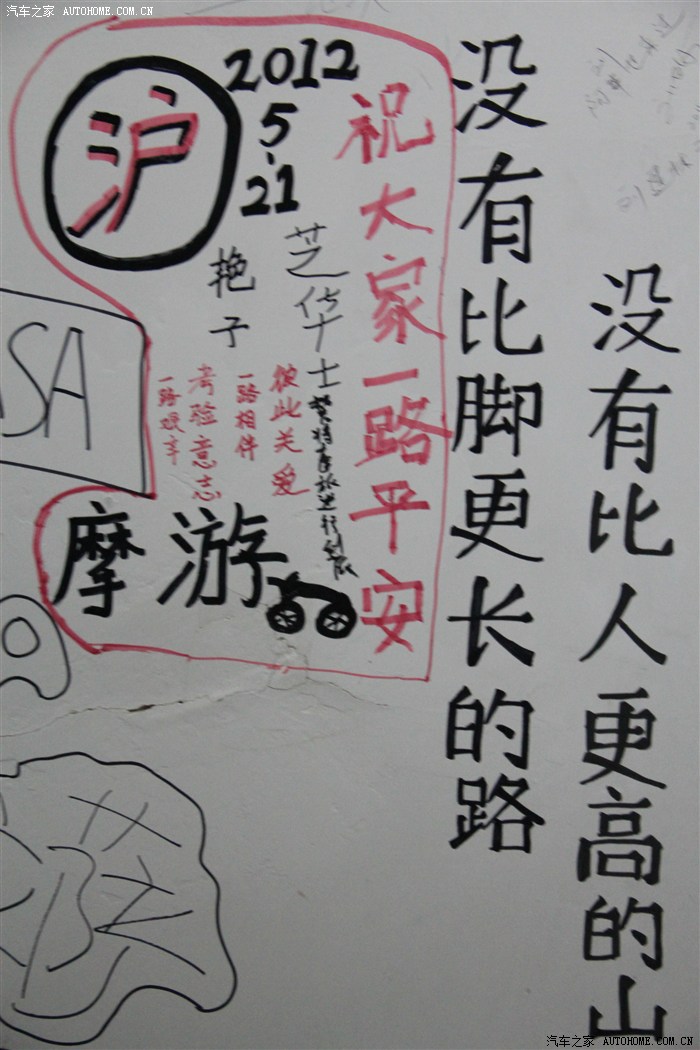 汽车之家 AUTOHOME.COM.CN
没有比人更高的山
没有比脚更长的路
祝大家一路平安
2012
5.21
沪
芝华士
艳子
彼此关爱
一路相伴
考验意志
一路艰辛
摩游
SA
汽车之家 AUTOHOME.COM.CN